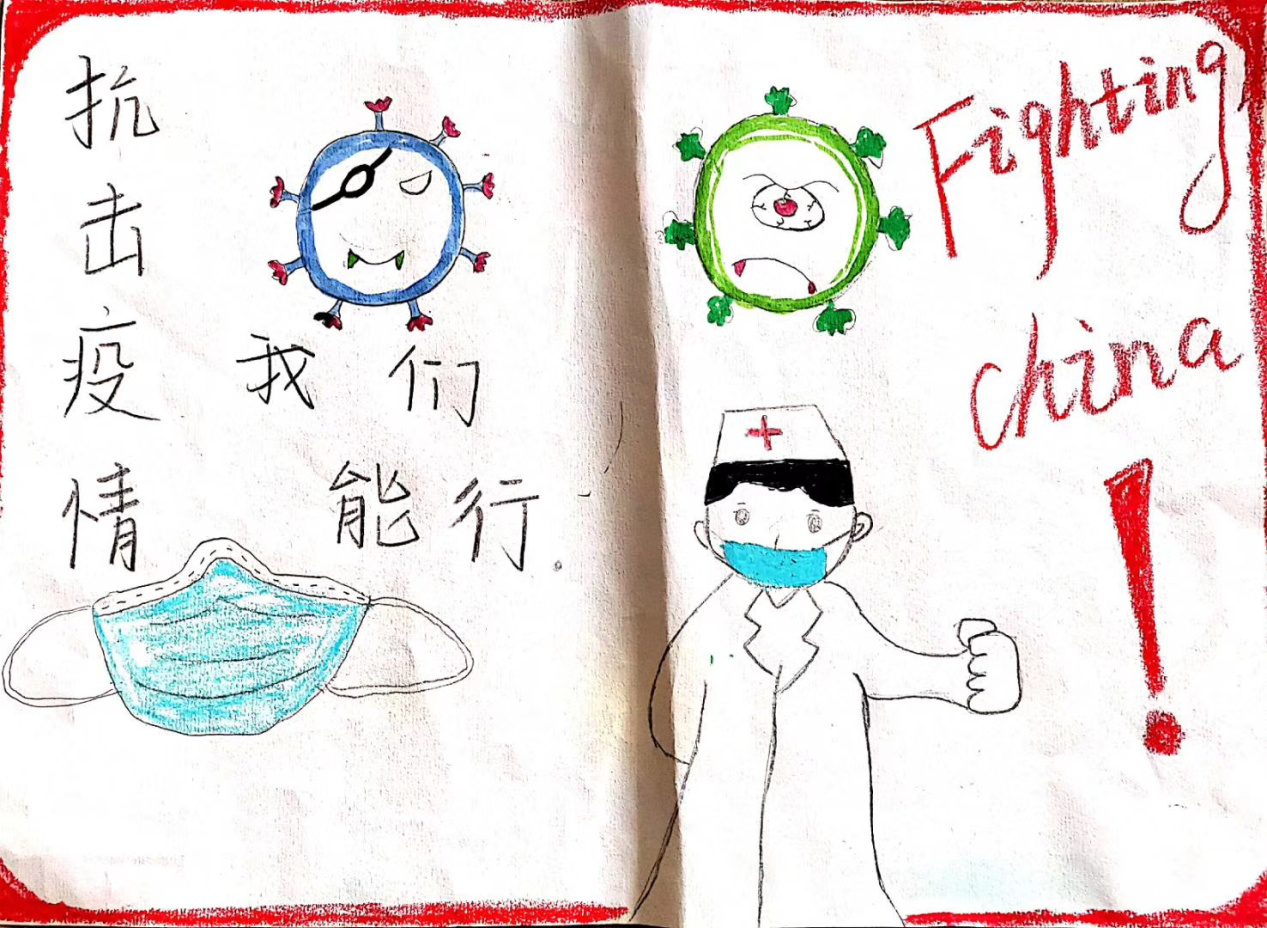 抗击疫情
我们
能行.
Fighting
china
!